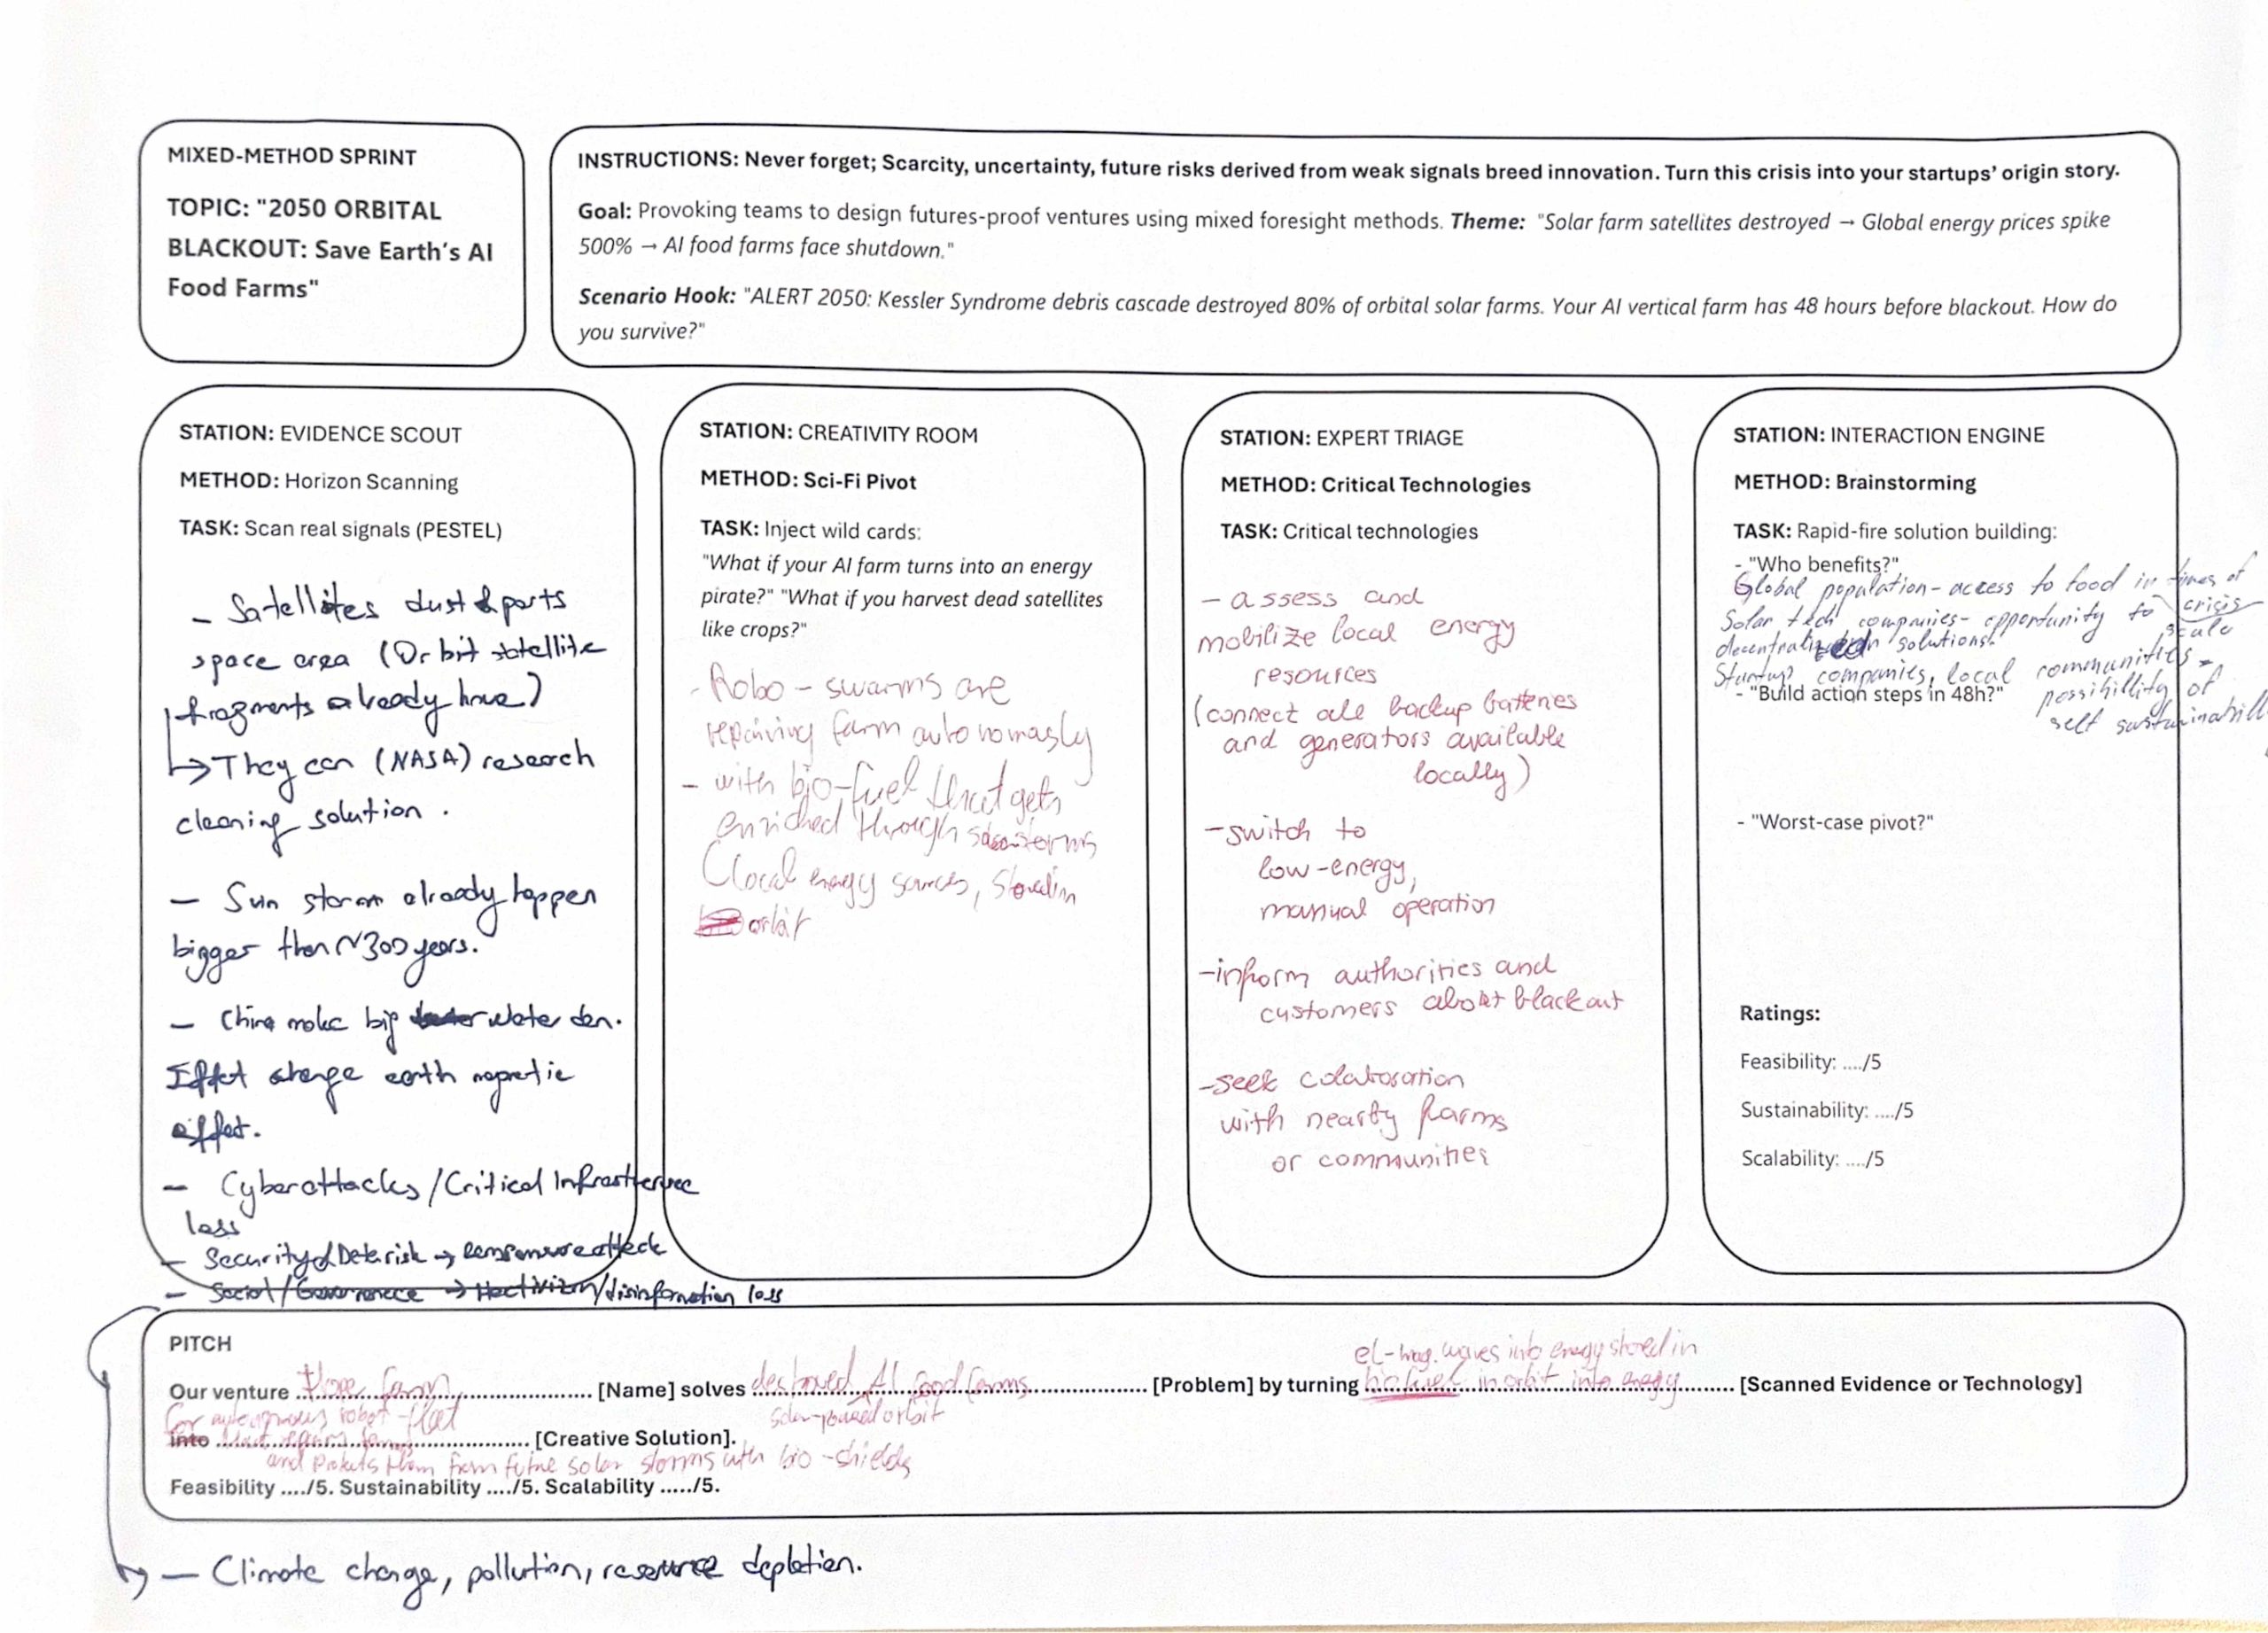 MIXED-METHOD SPRINT
TOPIC: "2050 ORBITAL
BLACKOUT: Save Earth's AI
Food Farms"
INSTRUCTIONS: Never forget; Scarcity, uncertainty, future risks derived from weak signals breed innovation. Turn this crisis into your startups' origin story.
Goal: Provoking teams to design futures-proof ventures using mixed foresight methods. Theme: "Solar farm satellites destroyed → Global energy prices spike
500% → AI food farms face shutdown."
Scenario Hook: "ALERT 2050: Kessler Syndrome debris cascade destroyed 80% of orbital solar farms. Your AI vertical farm has 48 hours before blackout. How do
you survive?"
STATION: EVIDENCE SCOUT
METHOD: Horizon Scanning
TASK: Scan real signals (PESTEL)
- Satellites dust & parts
space area (Orbit satellite
fragments already have)
↳ They can (NASA) research
cleaning solution.
- Sun storm already happen
bigger then ~300 years.
- China make big water den.
Effect change earth magnetic
effet.
- Cyberattacks/Critical Infrastructure
loss
- Security & Data risk → attack
- Social/Governence → Hactivizm/disinformation loss
STATION: CREATIVITY ROOM
METHOD: Sci-Fi Pivot
TASK: Inject wild cards:
"What if your AI farm turns into an energy
pirate?" "What if you harvest dead satellites
like crops?"
- Robo-swarms are
repairing farm autonomasly
- with bio-fuel that gets
enriched through storms
(local energy sources, stored in
orbit
STATION: EXPERT TRIAGE
METHOD: Critical Technologies
TASK: Critical technologies
- assess and
mobilize local energy
resources
(connect all backup batteries
and generators available
locally)
- switch to
low-energy,
manual operation
- inform authorities and
customers about blackout
- seek colaboration
with nearby farms
or communities
STATION: INTERACTION ENGINE
METHOD: Brainstorming
TASK: Rapid-fire solution building:
- "Who benefits?"
Global population - access to food in times of
crisis
Solar tech companies - opportunity to scale
decentralized solutions.
Startup companies, local communities -
possibillity of
self sustainabill
- "Build action steps in 48h?"
- "Worst-case pivot?"
Ratings:
Feasibility: ..../5
Sustainability: ..../5
Scalability: ..../5
PITCH
el-mag. waves into energy stored in
Our venture farm [Name] solves destroyed AI food farms [Problem] by turning biofuel in orbit into energy [Scanned Evidence or Technology]
for autonomous robot-fleet
solar-powered orbit
into that repairs farms [Creative Solution].
and protects them from future solar storms with bio-shields
Feasibility ..../5. Sustainability ..../5. Scalability ...../5.
- Climate change, pollution, resource depletion.